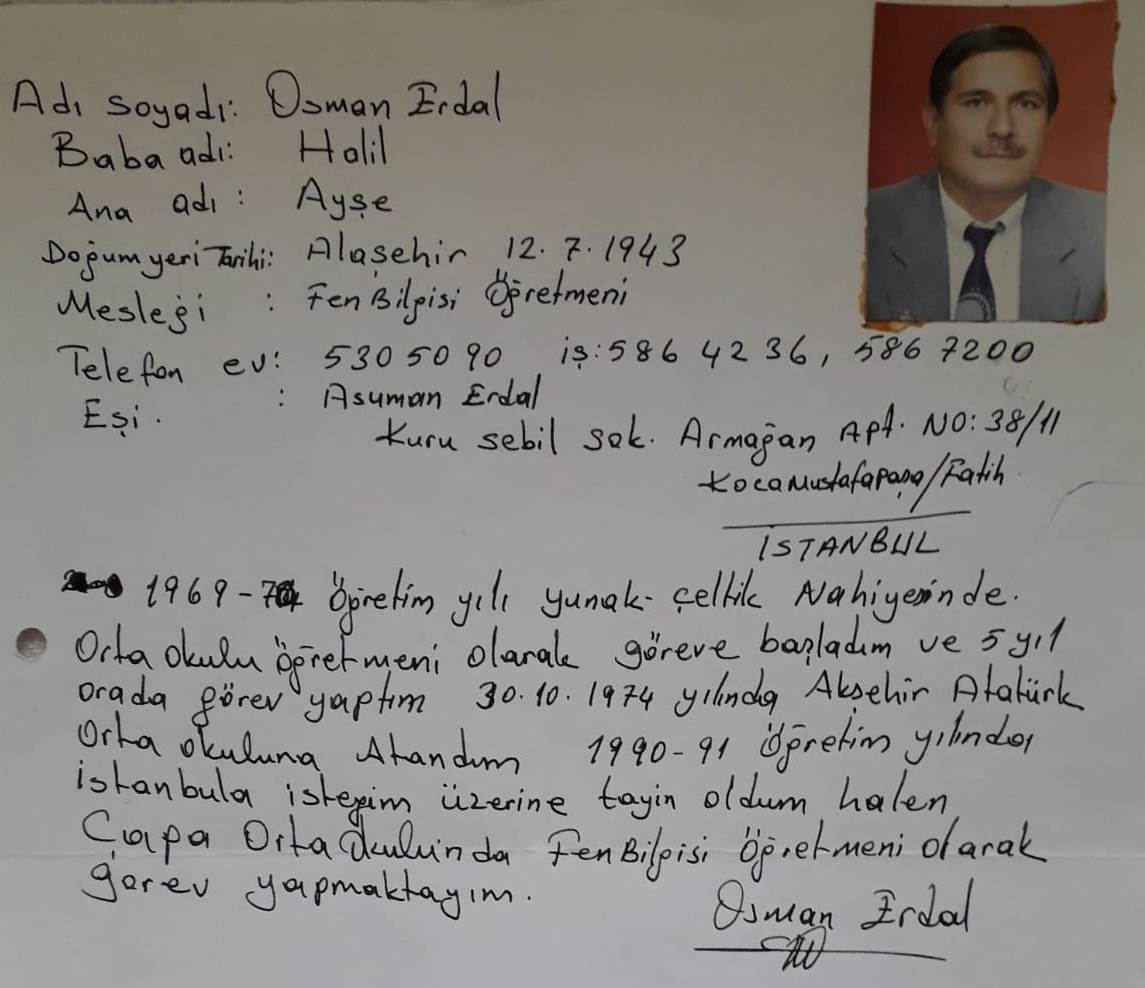 Adı soyadı: Osman Erdal
Baba adı: Halil
Ana adı : Ayşe
Doğum yeri Tarihi: Alaşehir 12.7.1943
Mesleği : Fen Bilgisi Öğretmeni
Telefon ev: 530 50 90 iş: 586 42 36, 586 7200
Eşi. : Asuman Erdal
Kuru sebil sok. Armağan Apt. NO: 38/11
Kocamustafapaşa/Fatih
İSTANBUL
1969-70 Öğretim yılı yunak-çeltik Nahiyesinde.
Orta okulu öğretmeni olarak göreve başladım ve 5 yıl
orada görev yaptım 30.10.1974 yılında Akşehir Atatürk
Orta okuluna Atandım 1990-91 Öğretim yılında
istanbula isteğim üzerine tayin oldum halen
Çapa Orta Okulunda Fen Bilgisi Öğretmeni olarak
görev yapmaktayım.
Osman Erdal